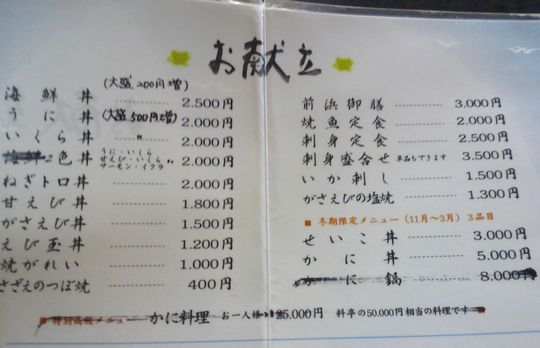 お献立
海鮮丼 (大盛200円増) 2.500円
うに丼 (大盛500円増) 2.000円
いくら丼 〃 2.000円
2色丼 うに・いくら 甘えび・いくら サーモン・イクラ 〃 2.000円
ねぎトロ丼 2.000円
甘えび丼 1.800円
がさえび丼 1.500円
えび玉丼 1.200円
焼がれい 1.000円
さざえのつぼ焼 400円
前浜御膳 3.000円
焼魚定食 2.000円
刺身定食 2.500円
刺身盛合せ 単品もできます 3.500円
いか刺し 1.500円
がさえびの塩焼 1.300円
■ 冬期限定メニュー(11月〜3月) 3品目
せいこ丼 3.000円
かに丼 5.000円
かに鍋 8.000円
■ 特別高級メニュー かに料理 お一人様 25.000円 料亭の50.000円相当の料理です